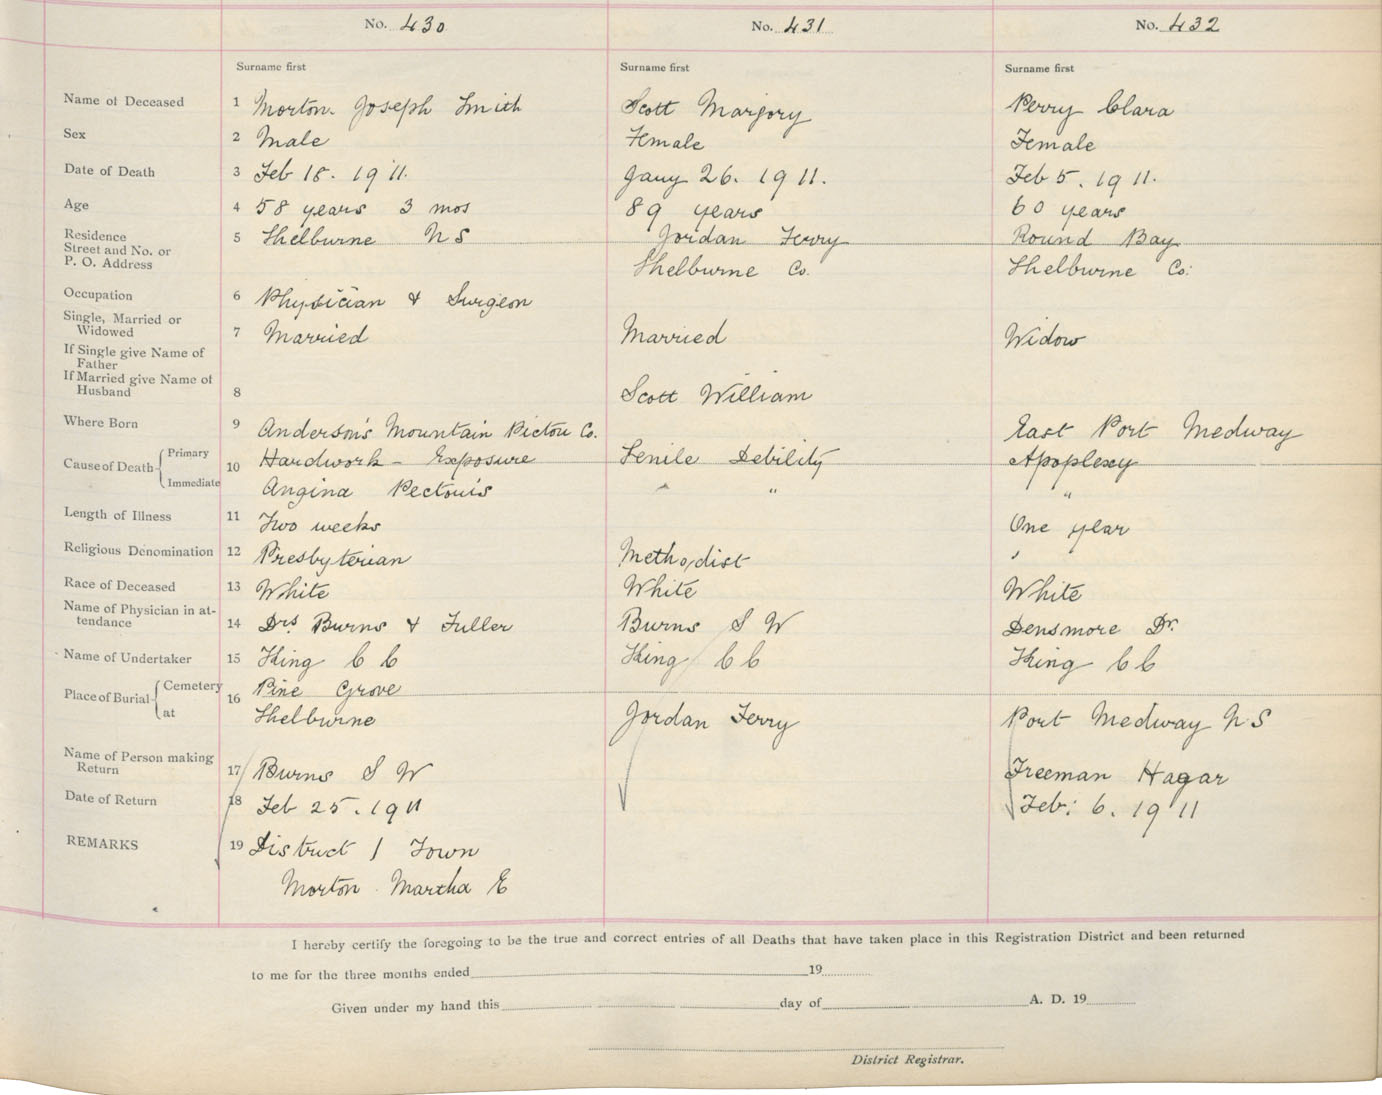 No. 430 No. 431 No. 432
Surname first Surname first Surname first
Name of Deceased 1 Morton. Joseph Smith Scott Marjory Perry Clara
Sex 2 Male Female Female
Date of Death 3 Feb 18. 1911. Jany 26. 1911. Feb 5. 1911.
Age 4 58 years 3 mos 89 years 60 years
Residence 5 Shelburne NS Jordan Ferry Round Bay
Street and No. or
P. O. Address Shelburne Co. Shelburne Co:
Occupation 6 Physician & Surgeon
Single, Married or
Widowed 7 Married Married Widow
If Single give Name of
Father
If Married give Name of
Husband 8 Scott William
Where Born 9 Anderson's Mountain Pictou Co. East Port Medway
Cause of Death Primary 10 Hardwork - Exposure Senile Debility Apoplexy
Immediate Angina Pectouis " " "
Length of Illness 11 Two weeks One year
Religious Denomination 12 Presbyterian Methodist
Race of Deceased 13 White White White
Name of Physician in at-
tendance 14 Drs Burns & Fuller Burns S W Densmore Dr.
Name of Undertaker 15 King C C King C C King C C
Place of Burial Cemetery 16 Pine Grove
at Shelburne Jordan Ferry Port Medway NS
Name of Person making
Return 17 Burns S W Freeman Hagar
Date of Return 18 Feb 25. 1911 Feb: 6. 1911
REMARKS 19 District 1 Town
Morton Martha E
I hereby certify the foregoing to be the true and correct entries of all Deaths that have taken place in this Registration District and been returned
to me for the three months ended 19
Given under my hand this day of A. D. 19
District Registrar.